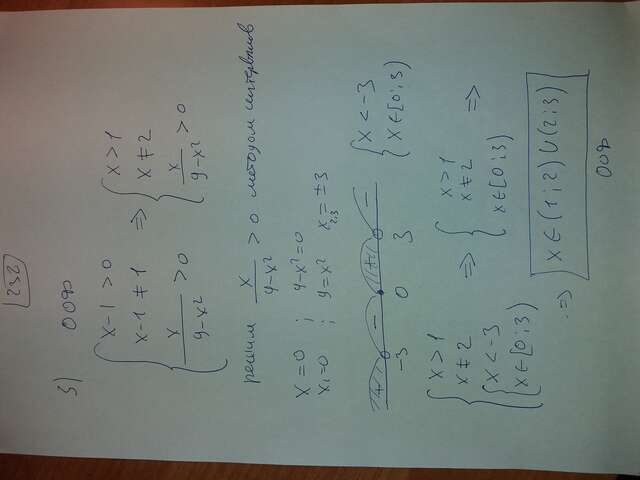 232
3) ООФ
{ x-1 > 0
x-1 ≠ 1
x/(9-x²) > 0
=> { x > 1
x ≠ 2
x/(9-x²) > 0
решим x/(9-x²) > 0 методом интервалов
x = 0 ; 9-x² = 0
x₁=0 ; 9 = x² x₂,₃ = ±3
+ - + -
-3 0 3
{ x < -3
x ∈ [0; 3)
{ x > 1
x ≠ 2
{ x < -3
x ∈ [0; 3)
=> { x > 1
x ≠ 2
x ∈ [0; 3)
=>
=> x ∈ (1; 2) ∪ (2; 3)
ООФ